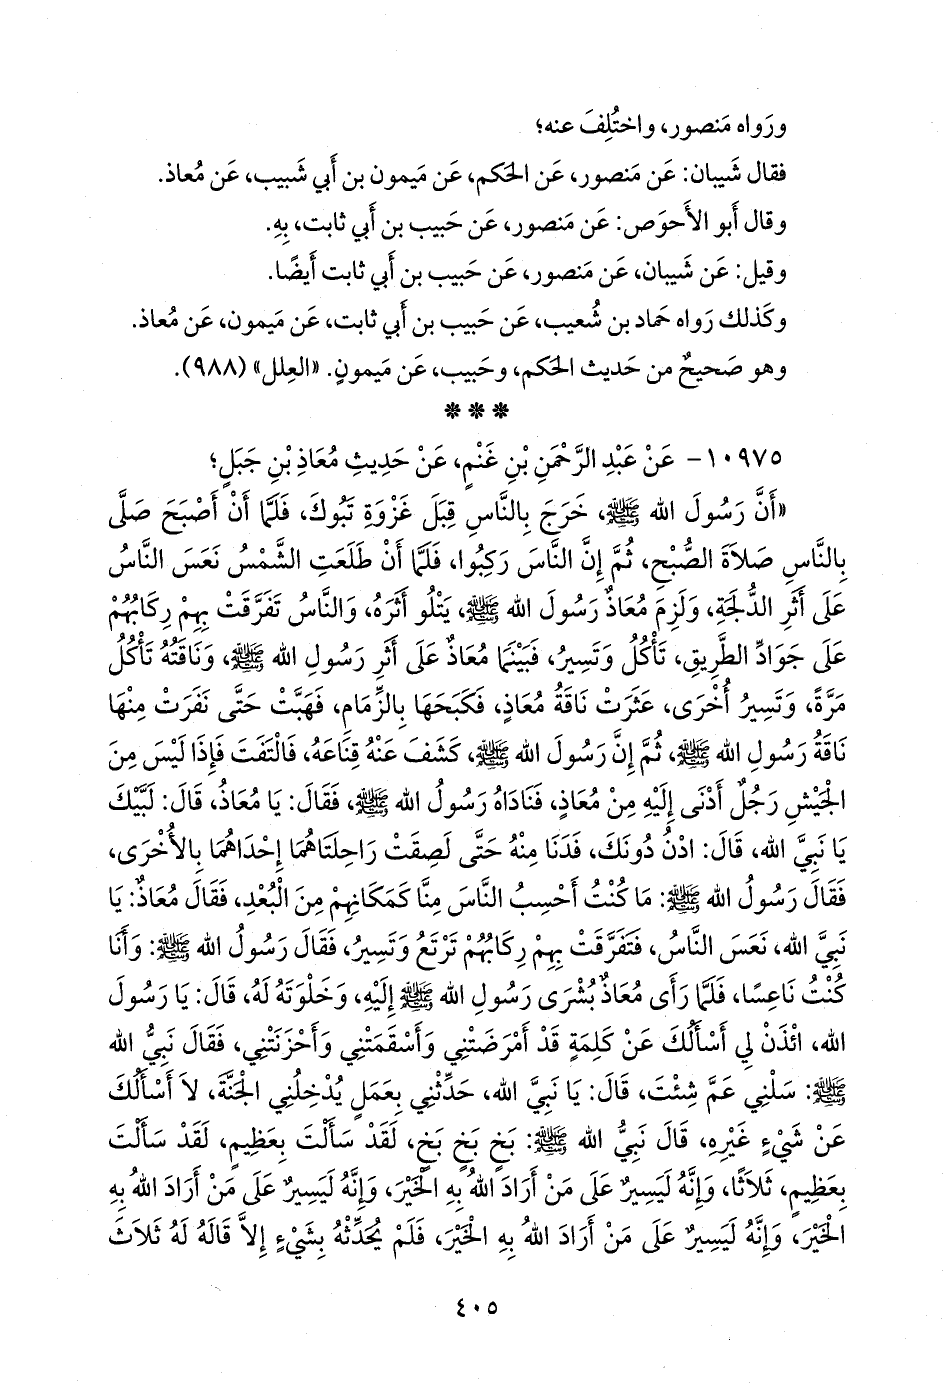 ورَواه مَنصور، واختُلِفَ عنه؛
فقال شَيبان: عَن مَنصور، عَن الحَكم، عَن مَيمون بن أَبي شَبيب، عَن مُعاذ.
وقال أَبو الأَحوَص: عَن مَنصور، عَن حَبيب بن أَبي ثابت، بِهِ.
وقيل: عَن شَيبان، عَن مَنصور، عَن حَبيب بن أَبي ثابت أَيضًا.
وكَذلك رَواه حَماد بن شُعيب، عَن حَبيب بن أَبي ثابت، عَن مَيمون، عَن مُعاذ.
وهو صَحيحٌ من حَديث الحَكم، وحَبيب، عَن مَيمونٍ. «العِلل» (٩٨٨).
***
١٠٩٧٥- عَنْ عَبْدِ الرَّحْمَنِ بْنِ غَنْمٍ، عَنْ حَدِيثِ مُعَاذِ بْنِ جَبَلٍ؛
«أَنَّ رَسُولَ الله ﷺ، خَرَجَ بِالنَّاسِ قِبَلَ غَزْوَةِ تَبُوكَ، فَلَمَّا أَنْ أَصْبَحَ صَلَّى
بِالنَّاسِ صَلاَةَ الصُّبْحِ، ثُمَّ إِنَّ النَّاسَ رَكِبُوا، فَلَمَّا أَنْ طَلَعَتِ الشَّمْسُ نَعَسَ النَّاسُ
عَلَى أَثَرِ الدُّلْجَةِ، وَلَزِمَ مُعَاذٌ رَسُولَ الله ﷺ، يَتْلُو أَثَرَهُ، وَالنَّاسُ تَفَرَّقَتْ بِهِمْ رِكَابُهُمْ
عَلَى جَوَادِّ الطَّرِيقِ، تَأْكُلُ وَتَسِيرُ، فَبَيْنَمَا مُعَاذٌ عَلَى أَثَرِ رَسُولِ الله ﷺ، وَنَاقَتُهُ تَأْكُلُ
مَرَّةً، وَتَسِيرُ أُخْرَى، عَثَرَتْ نَاقَةُ مُعَاذٍ، فَكَبَحَهَا بِالزِّمَامِ، فَهَبَّتْ حَتَّى نَفَرَتْ مِنْهَا
نَاقَةُ رَسُولِ الله ﷺ، ثُمَّ إِنَّ رَسُولَ الله ﷺ، كَشَفَ عَنْهُ قِنَاعَهُ، فَالْتَفَتَ فَإِذَا لَيْسَ مِنَ
الْجَيْشِ رَجُلٌ أَدْنَى إِلَيْهِ مِنْ مُعَاذٍ، فَنَادَاهُ رَسُولُ الله ﷺ، فَقَالَ: يَا مُعَاذُ، قَالَ: لَبَّيْكَ
يَا نَبِيَّ الله، قَالَ: ادْنُ دُونَكَ، فَدَنَا مِنْهُ حَتَّى لَصِقَتْ رَاحِلَتَاهُمَا إِحْدَاهُمَا بِالأُخْرَى،
فَقَالَ رَسُولُ الله ﷺ: مَا كُنْتُ أَحْسِبُ النَّاسَ مِنَّا كَمَكَانِهِمْ مِنَ الْبُعْدِ، فَقَالَ مُعَاذٌ: يَا
نَبِيَّ الله، نَعَسَ النَّاسُ، فَتَفَرَّقَتْ بِهِمْ رِكَابُهُمْ تَرْتَعُ وَتَسِيرُ، فَقَالَ رَسُولُ الله ﷺ: وَأَنَا
كُنْتُ نَاعِسًا، فَلَمَّا رَأَى مُعَاذٌ بُشْرَى رَسُولِ الله ﷺ إِلَيْهِ، وَخَلْوَتَهُ لَهُ، قَالَ: يَا رَسُولَ
الله، ائْذَنْ لِي أَسْأَلْكَ عَنْ كَلِمَةٍ قَدْ أَمْرَضَتْنِي وَأَسْقَمَتْنِي وَأَحْزَنَتْنِي، فَقَالَ نَبِيُّ الله
ﷺ: سَلْنِي عَمَّ شِئْتَ، قَالَ: يَا نَبِيَّ الله، حَدِّثْنِي بِعَمَلٍ يُدْخِلُنِي الْجَنَّةَ، لاَ أَسْأَلُكَ
عَنْ شَيْءٍ غَيْرِهِ، قَالَ نَبِيُّ الله ﷺ: بَخٍ بَخٍ بَخٍ، لَقَدْ سَأَلْتَ بِعَظِيمٍ، لَقَدْ سَأَلْتَ
بِعَظِيمٍ، ثَلاَثًا، وَإِنَّهُ لَيَسِيرٌ عَلَى مَنْ أَرَادَ اللهُ بِهِ الْخَيْرَ، وَإِنَّهُ لَيَسِيرٌ عَلَى مَنْ أَرَادَ اللهُ بِهِ
الْخَيْرَ، وَإِنَّهُ لَيَسِيرٌ عَلَى مَنْ أَرَادَ اللهُ بِهِ الْخَيْرَ، فَلَمْ يُحَدِّثْهُ بِشَيْءٍ إِلاَّ قَالَهُ لَهُ ثَلاَثَ
٤٠٥